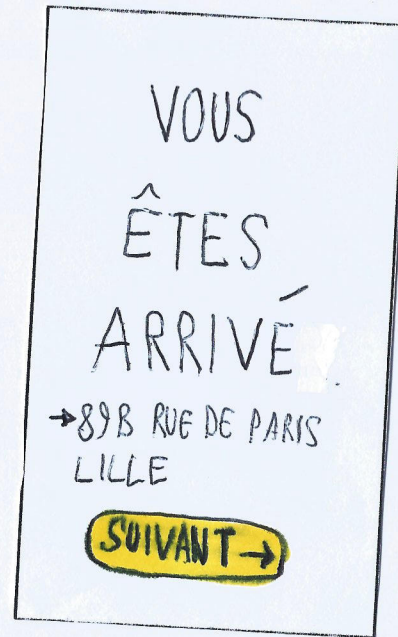 VOUS
ÊTES
ARRIVÉ
→89B RUE DE PARIS
LILLE
SUIVANT →